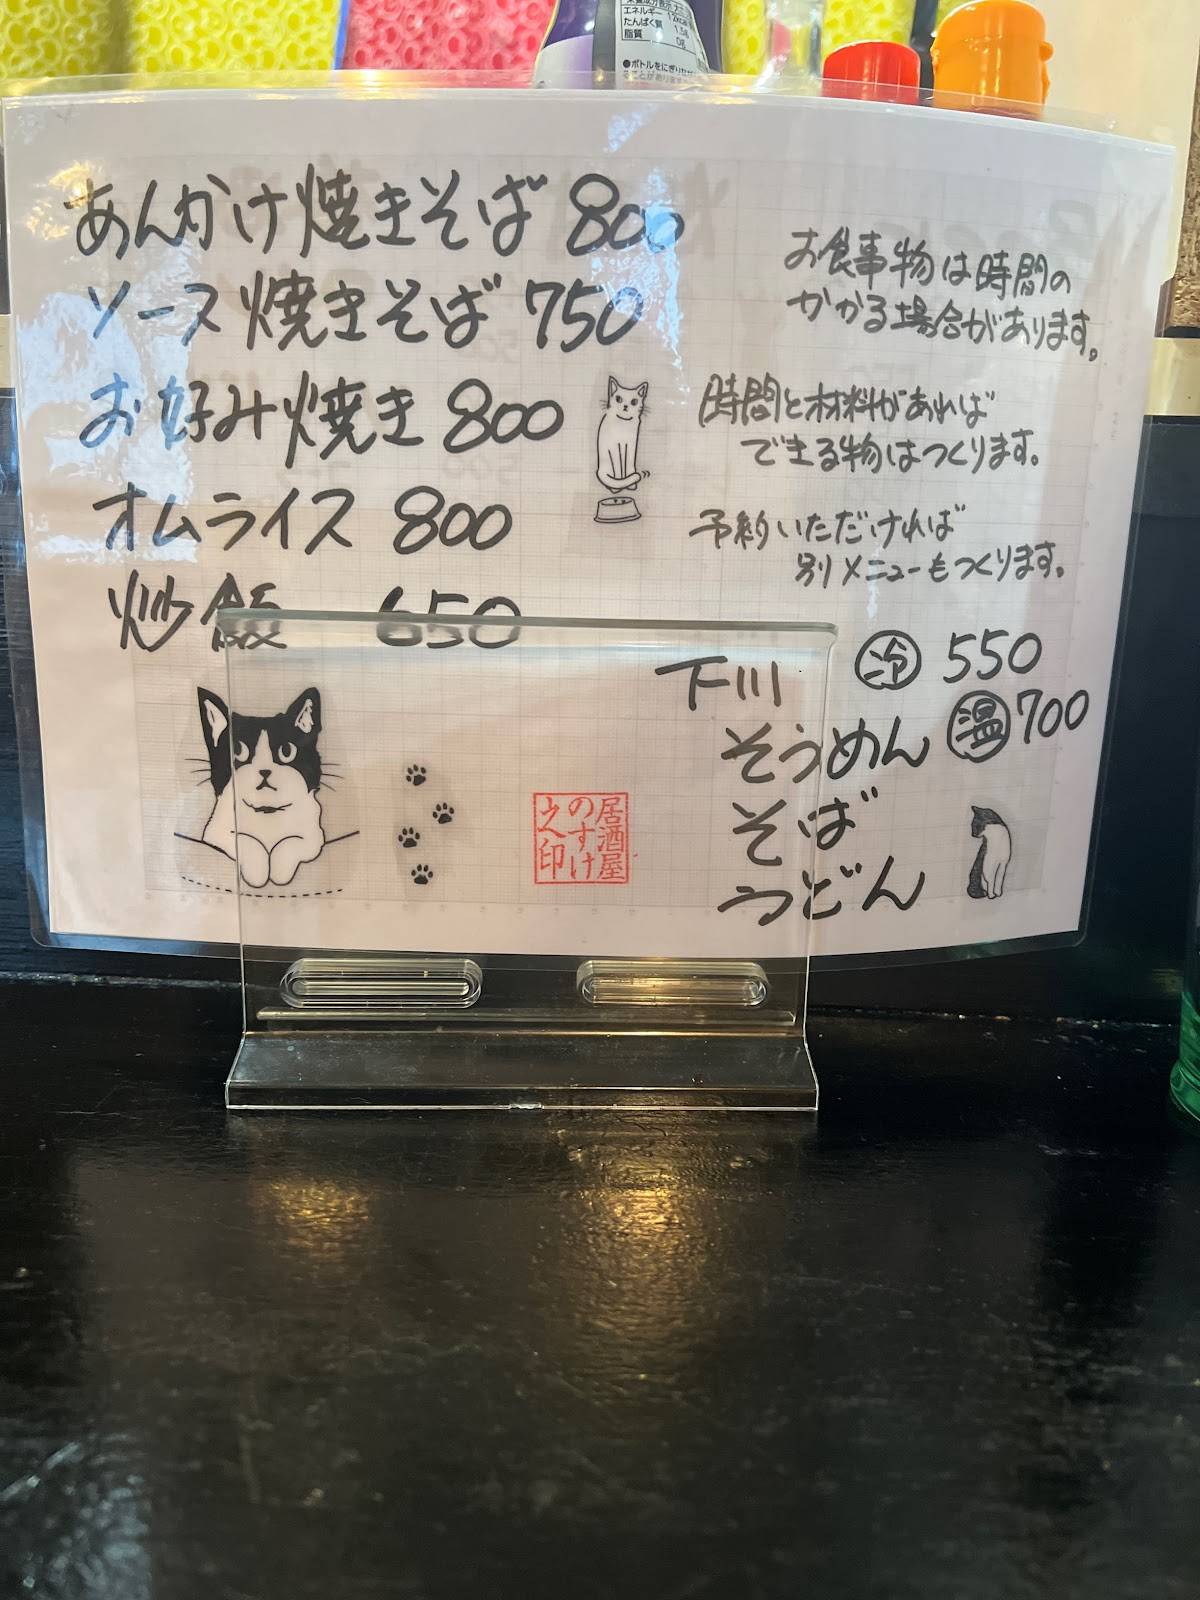 栄養成分表示
エネルギー 12kcal
たんぱく質 1.5g
脂質 0g
●ボトルをにぎり
あんかけ焼きそば 800
ソース焼きそば 750
お好み焼き 800
オムライス 800
炒飯 650
お食事物は時間の
かかる場合があります。
時間と材料があれば
できる物はつくります。
予約いただければ
別メニューもつくります。
下川 冷 550
そうめん 温 700
そば
うどん
居酒屋
のすけ
之印